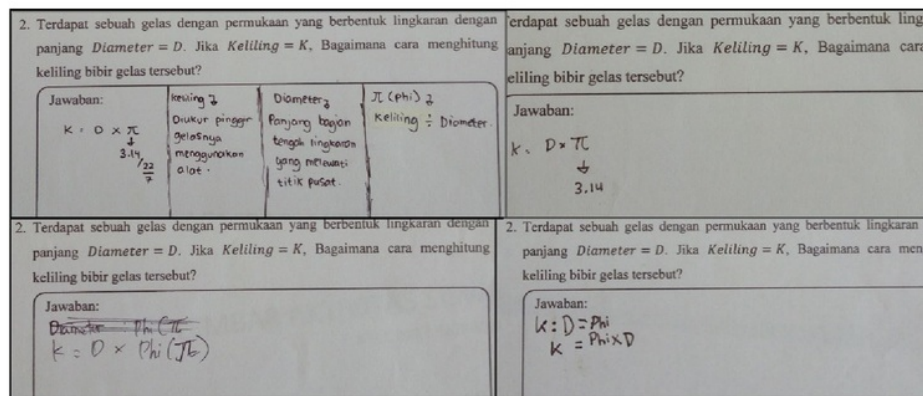 2. Terdapat sebuah gelas dengan permukaan yang berbentuk lingkaran dengan
panjang Diameter = D. Jika Keliling = K, Bagaimana cara menghitung
keliling bibir gelas tersebut?
Jawaban:
K = D × π
↓
3.14
/ 22
7
keliling
Diukur pinggir
gelasnya
menggunakan
alat.
Diameter
Panjang bagian
tengah lingkaran
yang melewati
titik pusat.
π (phi)
Keliling ÷ Diameter.
erdapat sebuah gelas dengan permukaan yang berbentuk ling
anjang Diameter = D. Jika Keliling = K, Bagaimana cara
eliling bibir gelas tersebut?
Jawaban:
K = D × π
↓
3.14
2. Terdapat sebuah gelas dengan permukaan yang berbentuk lingkaran dengan
panjang Diameter = D. Jika Keliling = K, Bagaimana cara menghitung
keliling bibir gelas tersebut?
Jawaban:
Diameter : Phi (π
K = D × Phi (π)
2. Terdapat sebuah gelas dengan permukaan yang berbentuk lingkaran
panjang Diameter = D. Jika Keliling = K, Bagaimana cara men
keliling bibir gelas tersebut?
Jawaban:
K : D = Phi
K = Phi × D